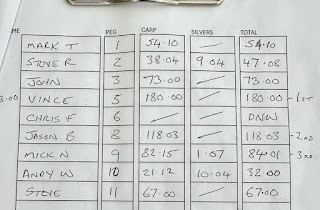 ME PEG CARP SILVERS TOTAL
MARK T 1 54.10 — 54.10
STEVE R 2 38.04 9.04 47.08
JOHN 3 73.00 — 73.00
3.00 VINCE 5 180.00 — 180.00 — 1ST
CHRIS F 6 — DNW
JASON B 8 118.03 — 118.03 — 2ND
MICK N 9 82.15 1.07 84.01 — 3RD
ANDY W 10 21.12 10.04 32.00
STEVE 11 67.00 — 67.00